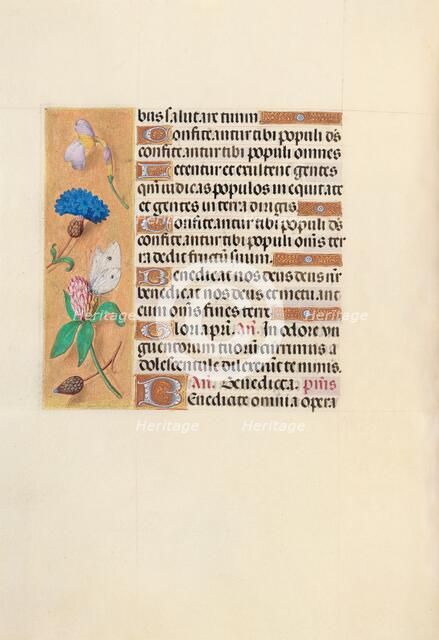 bus salutare tuum
Confiteantur tibi populi ds
confiteantur tibi populi omnes
Letentur et exultent gentes
qm iudicas populos in equitate
et gentes in terra dirigis
Confiteantur tibi populi ds
confiteantur tibi populi oms ter
ra dedit fructum suum.
Benedicat nos deus deus nr
benedicat nos deus et metuant
eum oms fines terre
Gloria pri. An. In odore vn
guentorum tuorū currimus a
dolescentule dilexerūt te nimis.
An. Benedicta. psms
Benedicite omnia opera
Heritage
Heritage
Heritage
Heritage
Heritage
Heritage